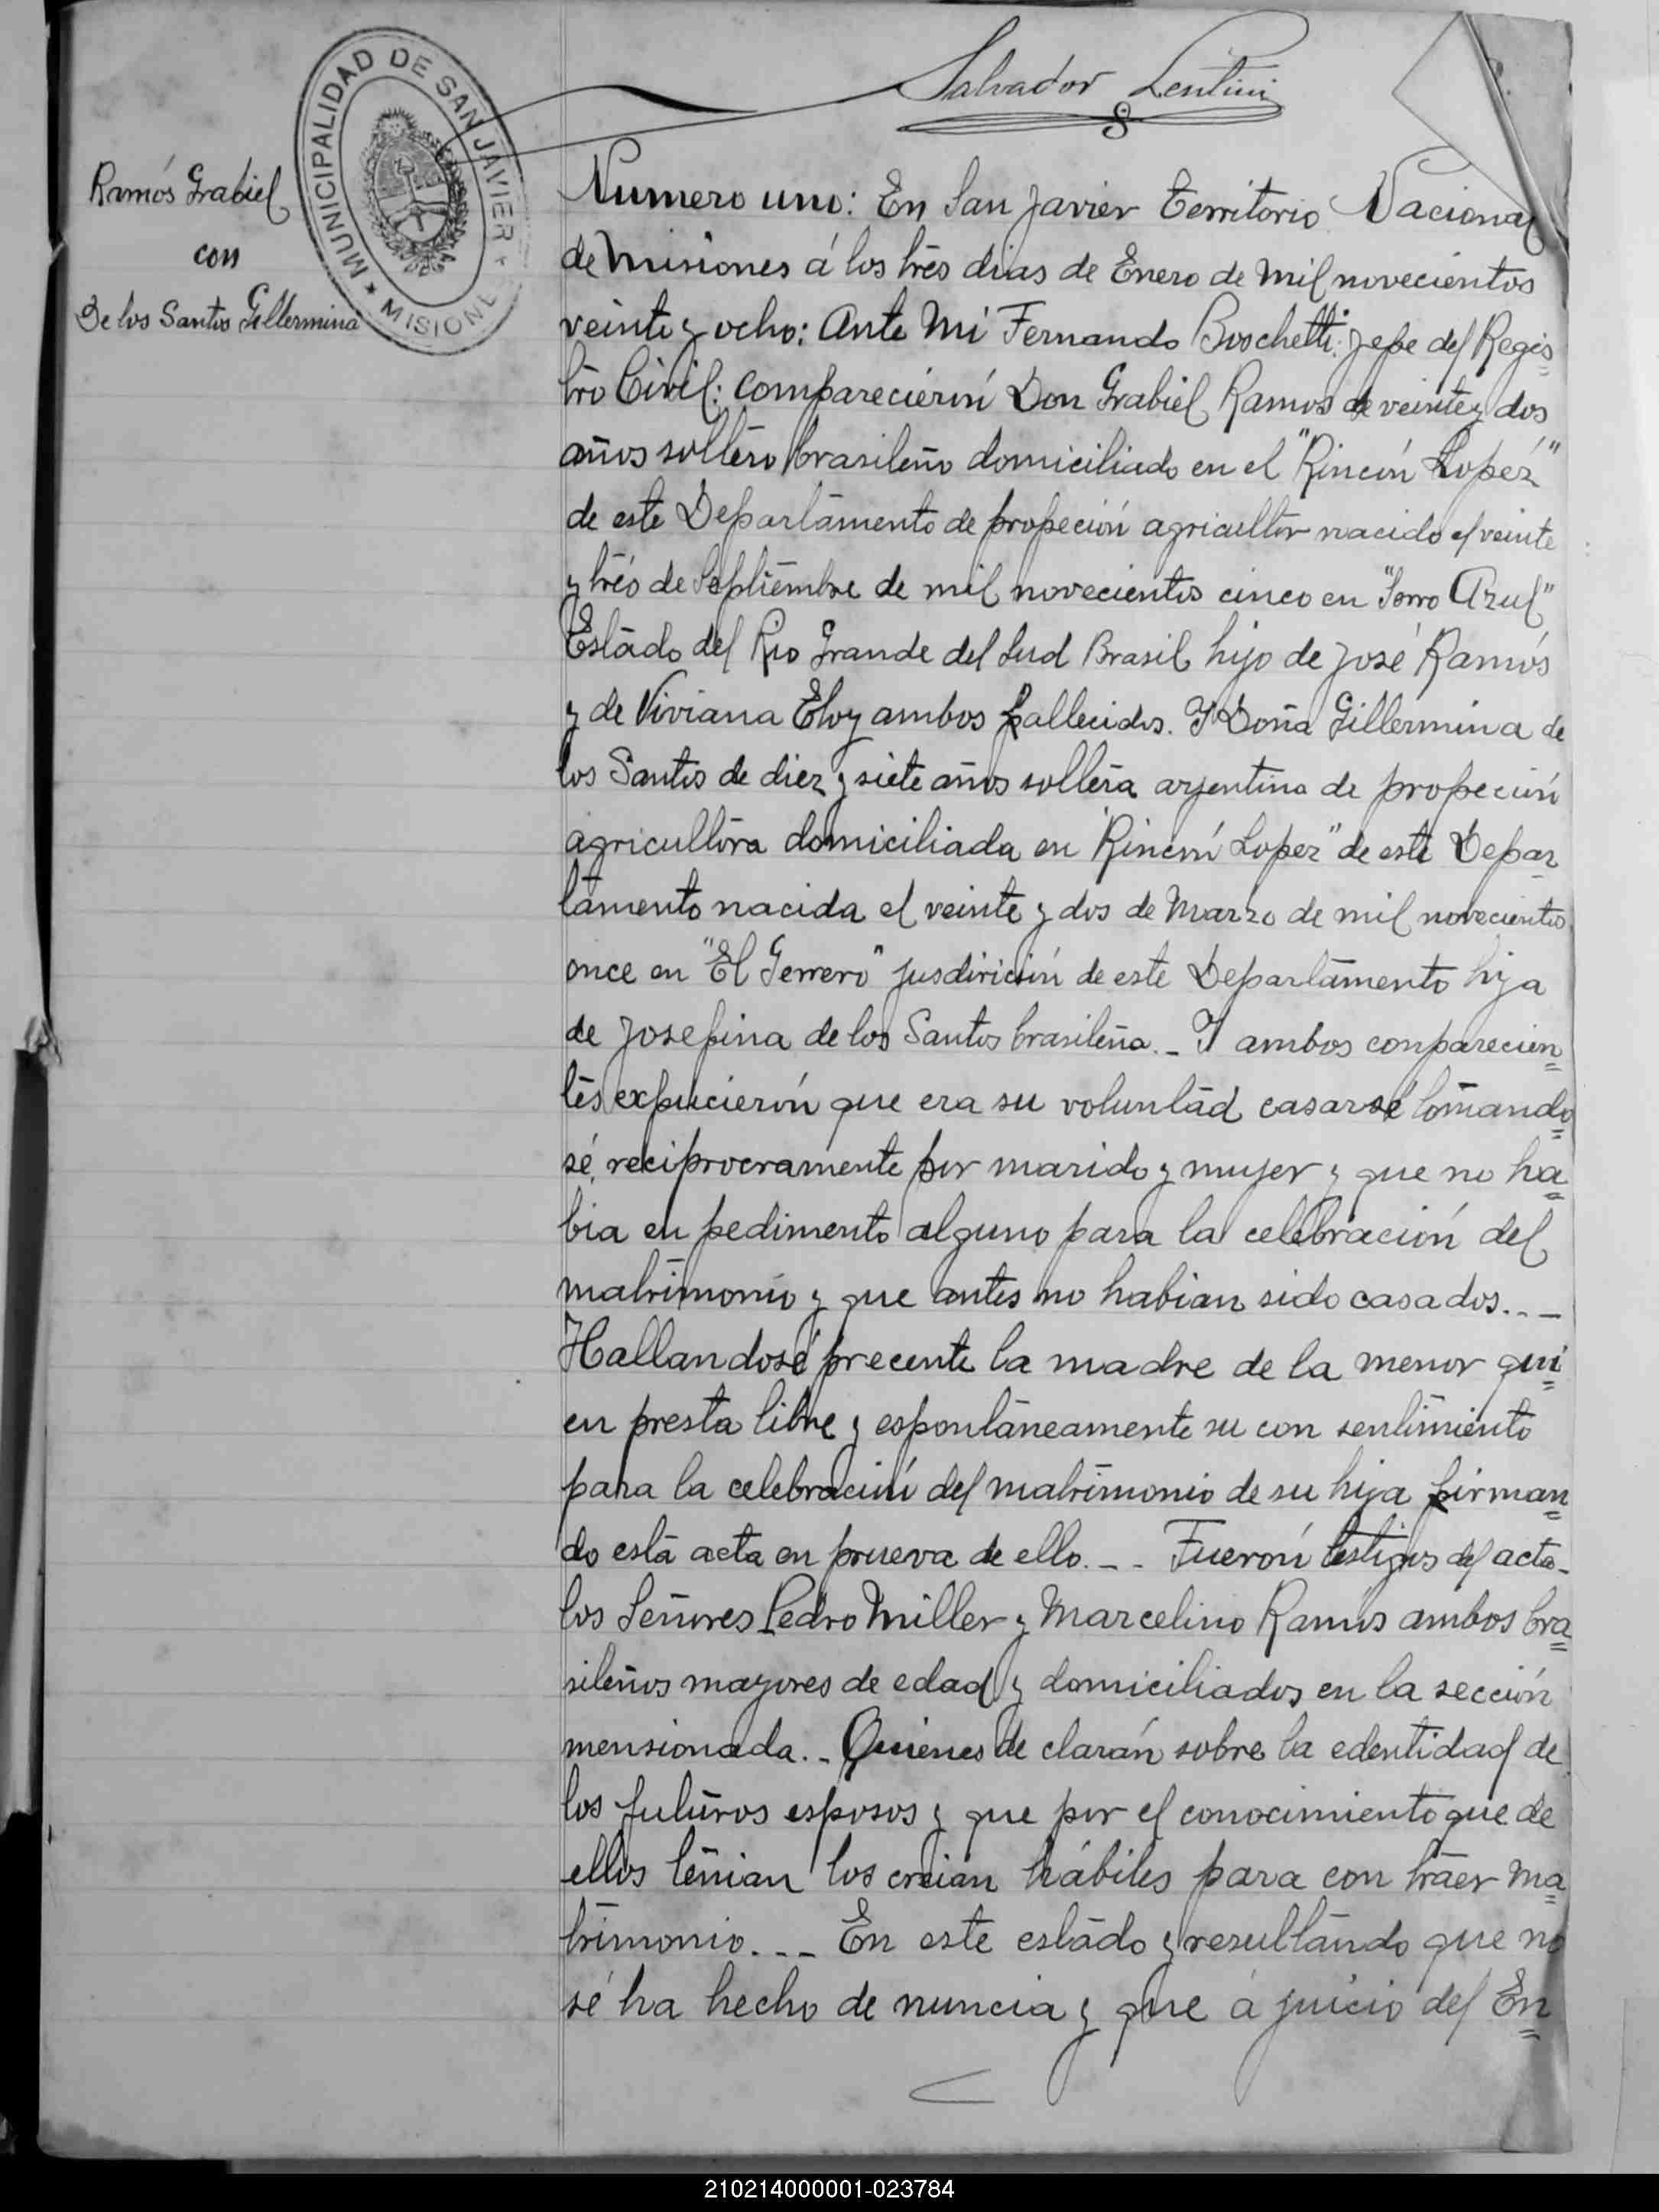 Salvador Lentini
MUNICIPALIDAD DE SAN JAVIER
★ MISIONES ★
Ramós Grabiel
con
De los Santos Gillermina
Numero uno: En San Javier Territorio Nacional
de Misiones á los três dias de Enero de Mil novecientos
veinte y ocho: Ante Mi Fernando Boschetti: Jefe del Regis=
tro Civil: comparecierón Don Grabiel Ramos de veinte y dos
años soltero brasileño domiciliado en el "Rincón Lopéz"
de este Departamento de profeción agricultor nacido el veinte
y três de Septiembre de mil novecientos cinco en "Serro Azul"
Estado del Rio Grande del Sud Brasil hijo de José Ramós
y de Viviana Eloy ambos fallecidos. Y Doña Gillermina de
los Santos de diez y siete años soltera argentina de profeción
agricultora domiciliada en "Rincón Lopez" de este Depar
tamento nacida el veinte y dos de Marzo de mil novecientos
once en "El Gerrero" jusdirición de este Departamento hija
de Josefina de los Santos brasileña._ Y ambos conparecien=
tes expucierón que era su voluntad casarsé tomando=
sé reciprocramente por marido y mujer y que no ha=
bia en pedimento alguno para la celebración del
matrimonio y que antes no habian sido casados.._
Hallandosé precente la madre de la menor qui=
en presta libre y espontaneamente su con sentimiento
para la celebración del matrimonio de su hija firman=
do esta acta en prueva de ello._ _ Fuerón testigos del acto-
los Señores Pedro Miller y Marcelino Ramós ambos bra=
sileños mayores de edad y domiciliados en la sección
mensionada._ Quienes de clarán sobre la edentidad de
los futuros esposos y que por el conocimiento que de
ellos tenian los creian hábiles para con traer Ma=
trimonio._ _ _ En este estado y resultando que no
sé ha hecho de nuncia y que a juicio del En=
210214000001-023784